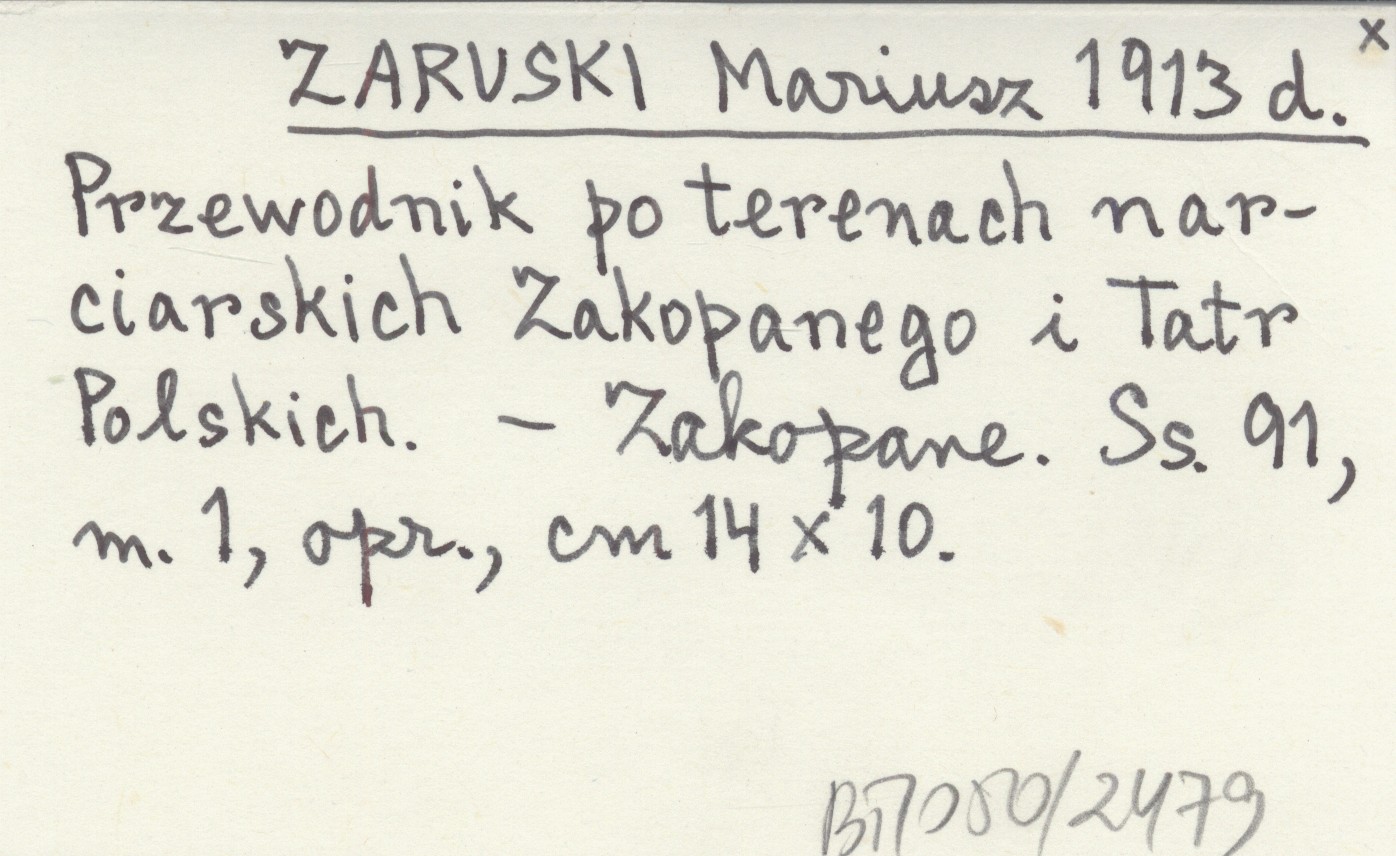 x
ZARUSKI Mariusz 1913 d.
Przewodnik po terenach nar-
ciarskich Zakopanego i Tatr
Polskich. – Zakopane. Ss. 91,
m. 1, opr., cm 14 x 10.